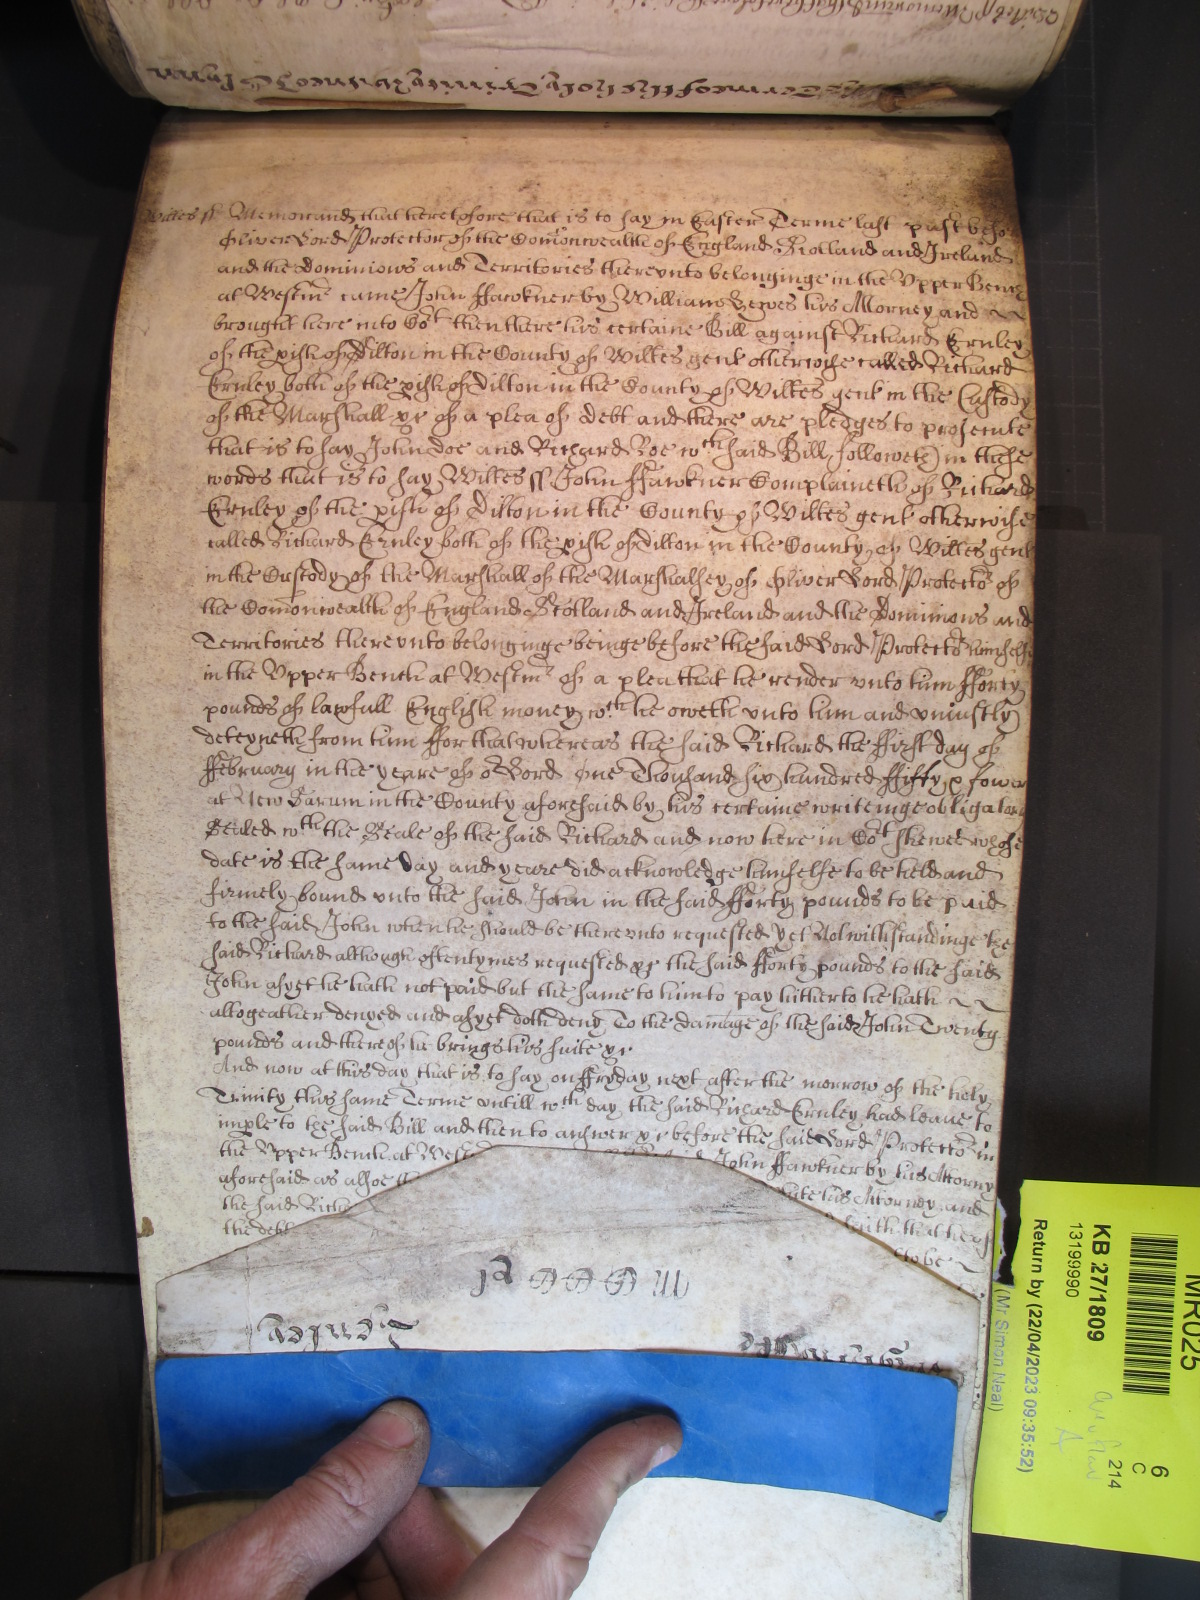 Wiltes ss Memorand that heretofore that is to say in Easter Terme last past befo
Oliver Lord Protector of the Comonwealth of England Scotland and Ireland
and the dominions and Territories therevnto belonginge in the Vpper Bench
at Westmr came John Fawkner by William Yewes his Attorney and
brought here into Cort then there his certaine Bill against Richard Ernley
of the pish of Dilton in the County of Wiltes gent otherwise called Richard
Ernley both of the pish of Dilton in the County of Wiltes gent in the Custody
of the Marshall &c of a plea of debt and there are pledges to prosecute
that is to say John Doe and Richard Roe wch said Bill followeth in these
words that is to say Wiltes ss John Fawkner Complaineth of Richard
Ernley of the pish of Dilton in the County of Wiltes gent otherwise
called Richard Ernley both of the pish of Dilton in the County of Wiltes gent
in the Custody of the Marshall of the Marshalsey of Oliver Lord Protector of
the Comonwealth of England Scotland and Ireland and the Dominions and
Territories therevnto belonginge beinge before the said Lord Protector himselfe
in the Vpper Bench at Westmr of a plea that he render vnto him fforty
pounds of lawfull English money wch he oweth vnto him and vniustly
deteyneth from him ffor that whereas the said Richard the ffirst day of
ffebruary in the yeare of or Lord One Thousand six hundred ffifty & fower
at New Sarum in the County aforesaid by his certaine writeinge obligatory
Sealed wth the Seale of the said Richard and now here in Cort shewed whose
date is the same day and yeare did acknowledge himselfe to be held and
firmely bound vnto the said John in the said fforty pounds to be paid
to the said John when he should be therevnto requested Yet Notwithstandinge the
said Richard although oftentymes requested &c the said fforty pounds to the said
John as yet he hath not paid but the same to him to pay hitherto he hath
altogeather denyed and as yet doth deny To the damage of the said John Twenty
pounds and thereof he brings his suite &c
And now at this day that is to say on ffryday next after the morrow of the holy
Trinity this same Terme vntill wch day the said Richard Ernley had leave to
imple to the said Bill and then to answer &c before the said Lord Protector in
the Vpper Bench at West John Fawkner by his Attorny
aforesaid as alsoe his Attorney and
the said Rich saith that hee
the debt to be
KB 27/1809
13199990
Return by (22/04/2023 09:35:52)
(Mr Simon Neal)
MR025
6
C
214